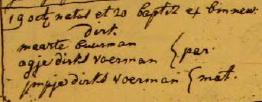 19 oct natus et 20 baptiz ex binnew.
Dirk.
maarte buerman
aggie dirks voerman } par.
dirks voerman } mat.